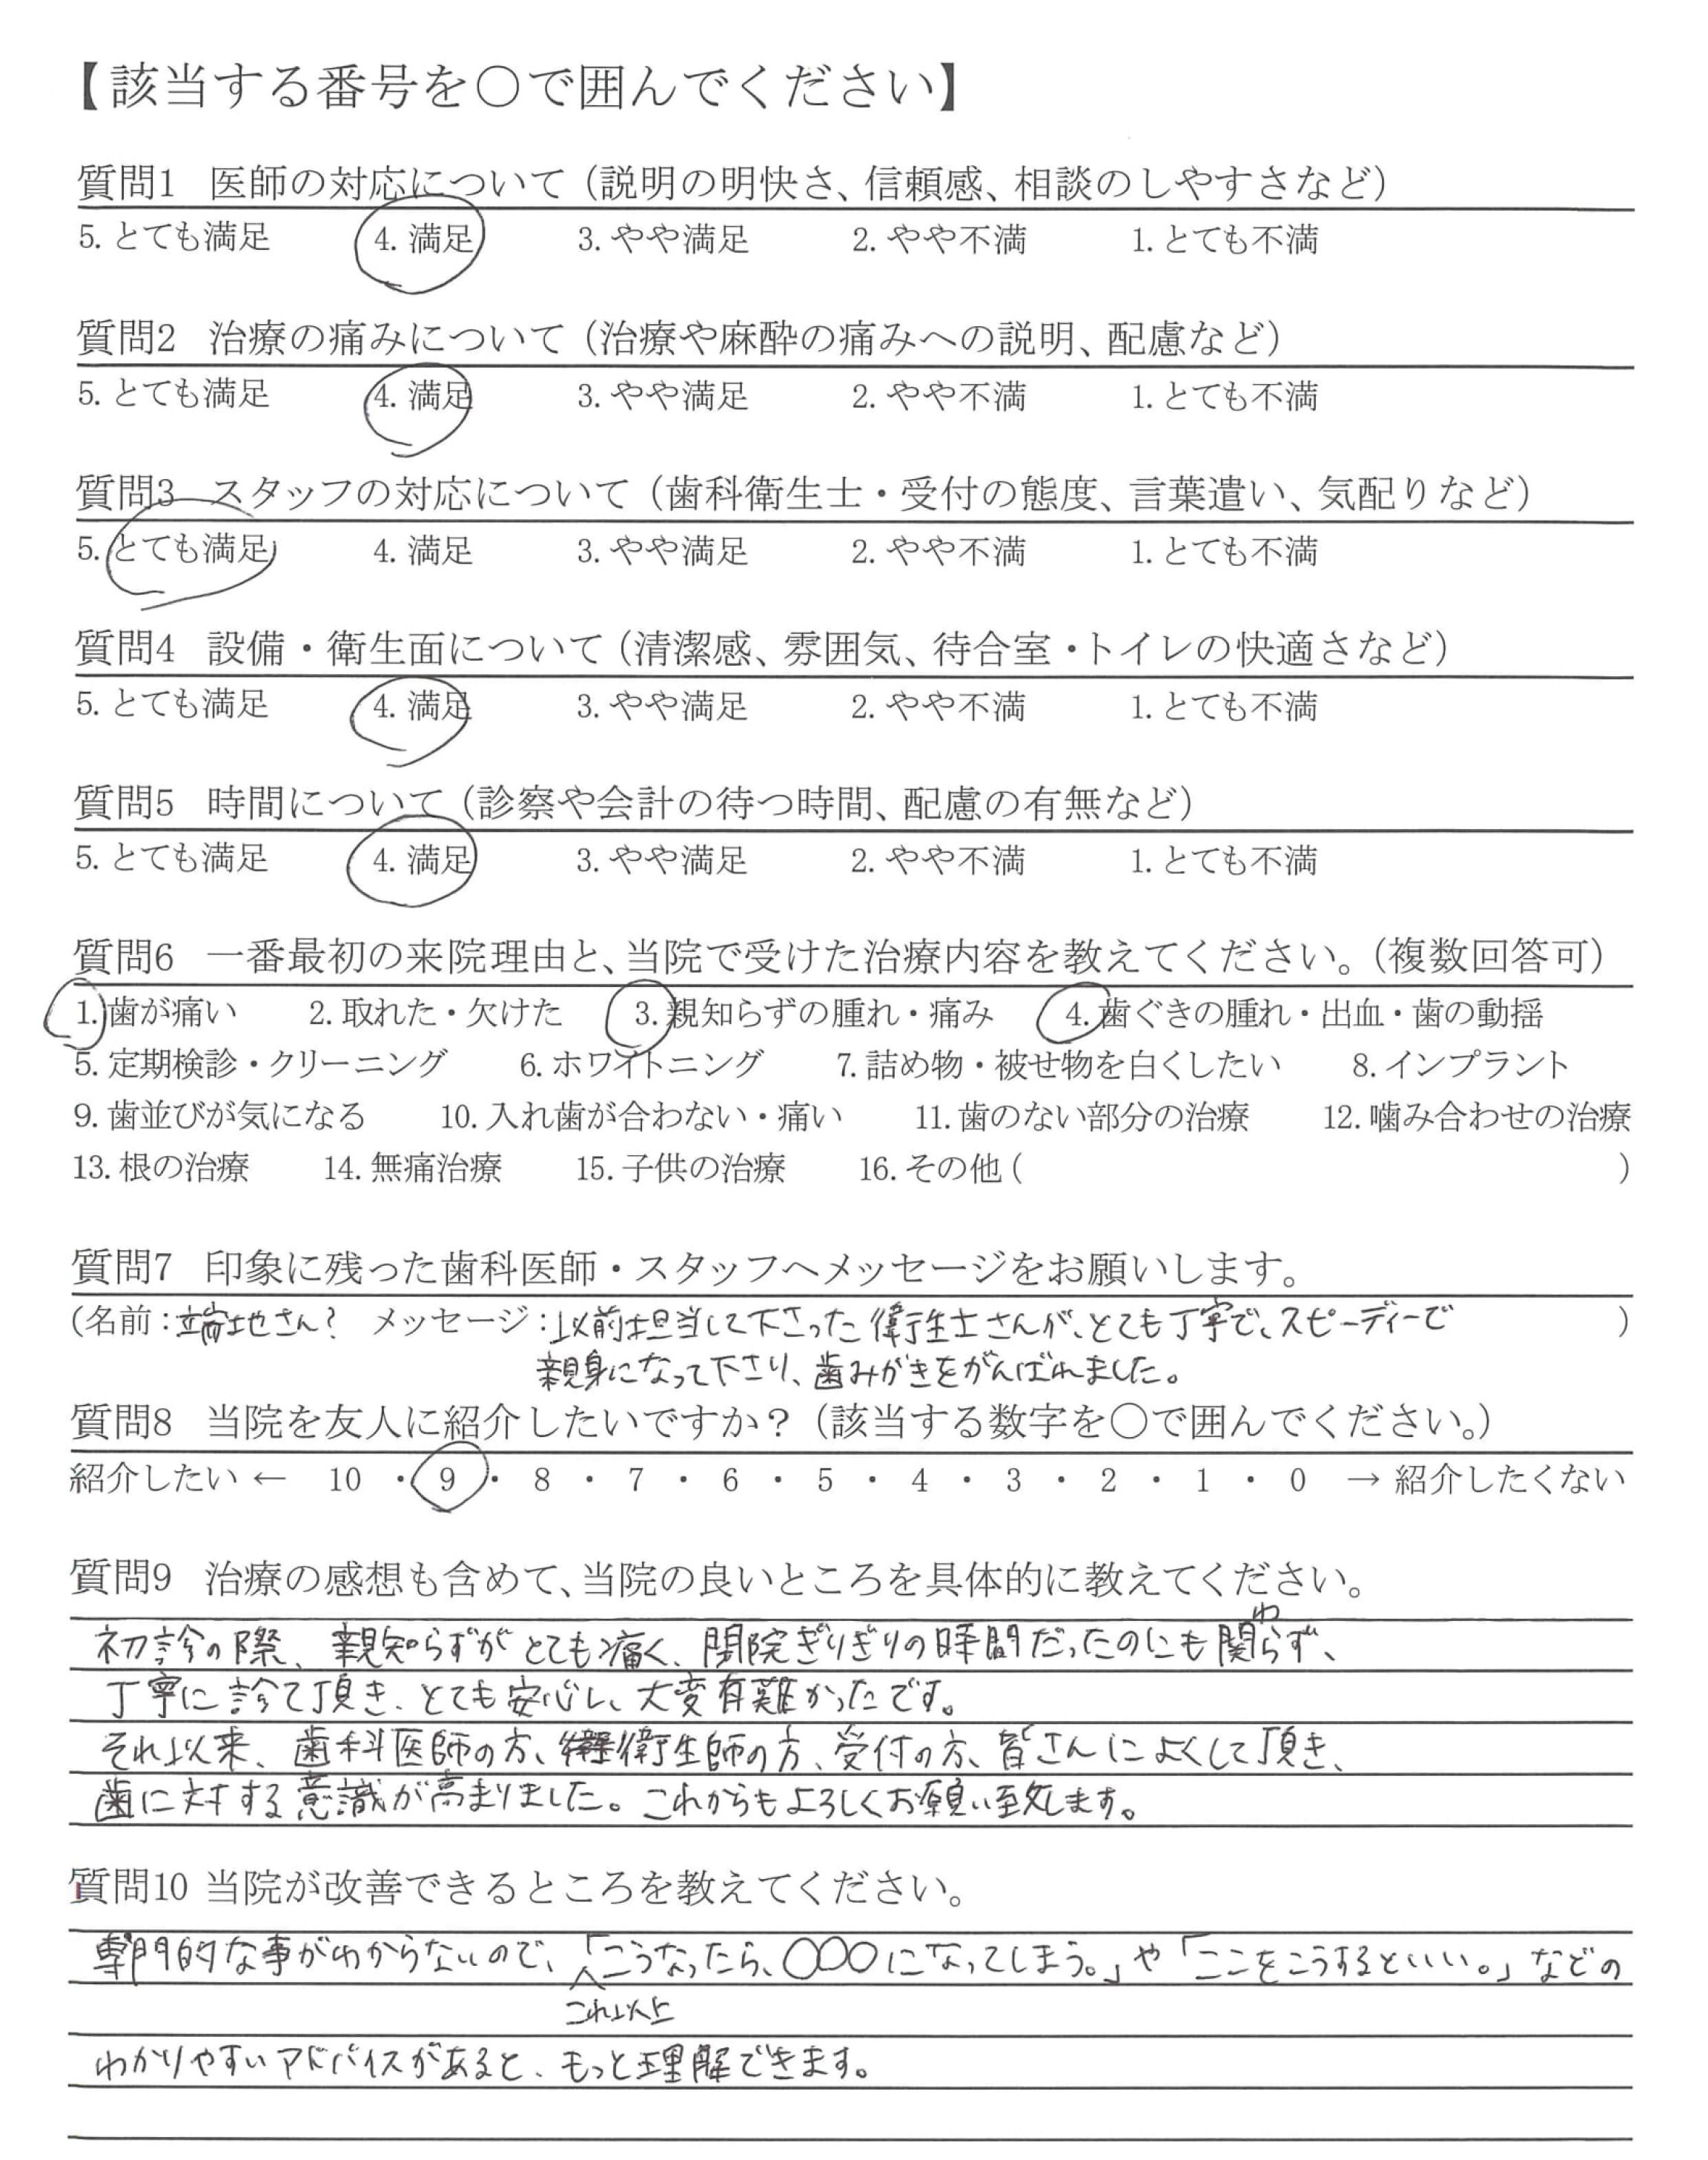 【該当する番号を〇で囲んでください】
質問1 医師の対応について（説明の明快さ、信頼感、相談のしやすさなど）
5. とても満足 4. 満足 3. やや満足 2. やや不満 1. とても不満
質問2 治療の痛みについて（治療や麻酔の痛みへの説明、配慮など）
5. とても満足 4. 満足 3. やや満足 2. やや不満 1. とても不満
質問3 スタッフの対応について（歯科衛生士・受付の態度、言葉遣い、気配りなど）
5. とても満足 4. 満足 3. やや満足 2. やや不満 1. とても不満
質問4 設備・衛生面について（清潔感、雰囲気、待合室・トイレの快適さなど）
5. とても満足 4. 満足 3. やや満足 2. やや不満 1. とても不満
質問5 時間について（診察や会計の待つ時間、配慮の有無など）
5. とても満足 4. 満足 3. やや満足 2. やや不満 1. とても不満
質問6 一番最初の来院理由と、当院で受けた治療内容を教えてください。（複数回答可）
1. 歯が痛い 2. 取れた・欠けた 3. 親知らずの腫れ・痛み 4. 歯ぐきの腫れ・出血・歯の動揺
5. 定期検診・クリーニング 6. ホワイトニング 7. 詰め物・被せ物を白くしたい 8. インプラント
9. 歯並びが気になる 10. 入れ歯が合わない・痛い 11. 歯のない部分の治療 12. 噛み合わせの治療
13. 根の治療 14. 無痛治療 15. 子供の治療 16. その他（ ）
質問7 印象に残った歯科医師・スタッフへメッセージをお願いします。
（名前：端地さん？ メッセージ：以前担当して下さった衛生士さんが、とても丁寧で、スピーディーで ）
親身になって下さり、歯みがきをがんばれました。
質問8 当院を友人に紹介したいですか？（該当する数字を〇で囲んでください。）
紹介したい ← 10 ・ 9 ・ 8 ・ 7 ・ 6 ・ 5 ・ 4 ・ 3 ・ 2 ・ 1 ・ 0 → 紹介したくない
質問9 治療の感想も含めて、当院の良いところを具体的に教えてください。
初診の際、親知らずがとても痛く、閉院ぎりぎりの時間だったのにも関わらず、
丁寧に診て頂き、とても安心し、大変有難かったです。
それ以来、歯科医師の方、衛生師の方、受付の方、皆さんによくして頂き、
歯に対する意識が高まりました。これからもよろしくお願い致します。
質問10 当院が改善できるところを教えてください。
専門的な事がわからないので、「こうなったら、〇〇〇になってしまう。」や「ここをこうするといい。」などの
これ以上
わかりやすいアドバイスがあると、もっと理解できます。